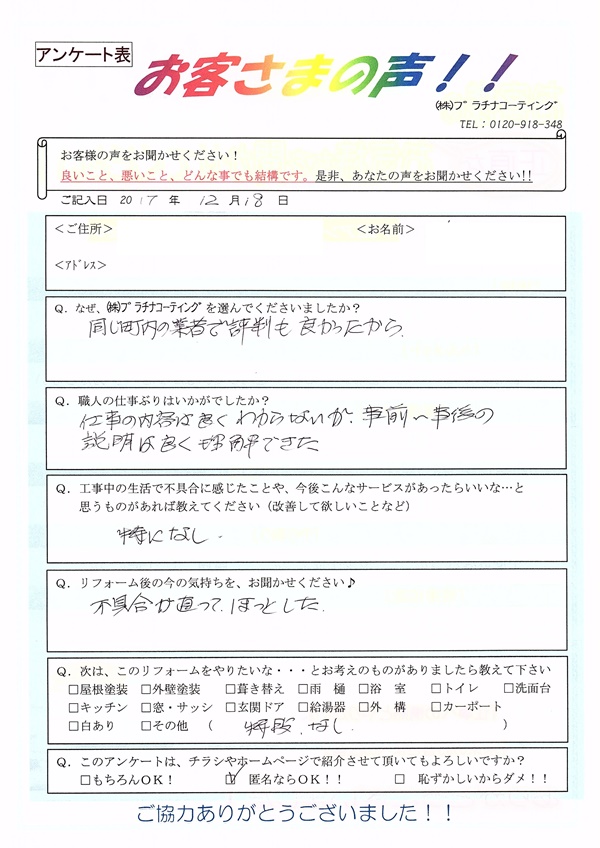 アンケート表
お客さまの声！！
㈱プラチナコーティング
TEL：0120-918-348
お客様の声をお聞かせください！
良いこと、悪いこと、どんな事でも結構です。是非、あなたの声をお聞かせください!!
ご記入日 2017 年 12 月 18 日
＜ご住所＞ ＜お名前＞
＜ｱﾄﾞﾚｽ＞
Q．なぜ、㈱プラチナコーティングを選んでくださいましたか？
同じ町内の業者で評判も良かったから.
Q．職人の仕事ぶりはいかがでしたか？
仕事の内容は良くわからないが、事前〜事後の
説明は良く理解できた
Q．工事中の生活で不具合に感じたことや、今後こんなサービスがあったらいいな…と
思うものがあれば教えてください（改善して欲しいことなど）
特になし.
Q．リフォーム後の今の気持ちを、お聞かせください♪
不具合が直って、ほっとした.
Q．次は、このリフォームをやりたいな・・・とお考えのものがありましたら教えて下さい
□屋根塗装 □外壁塗装 □葺き替え □雨 樋 □浴 室 □トイレ □洗面台
□キッチン □窓・サッシ □玄関ドア □給湯器 □外 構 □カーポート
□白あり □その他 （ 特段、なし. ）
Q．このアンケートは、チラシやホームページで紹介させて頂いてもよろしいですか？
□もちろんOK！ ☑ 匿名ならOK！！ □ 恥ずかしいからダメ！！
ご協力ありがとうございました！！